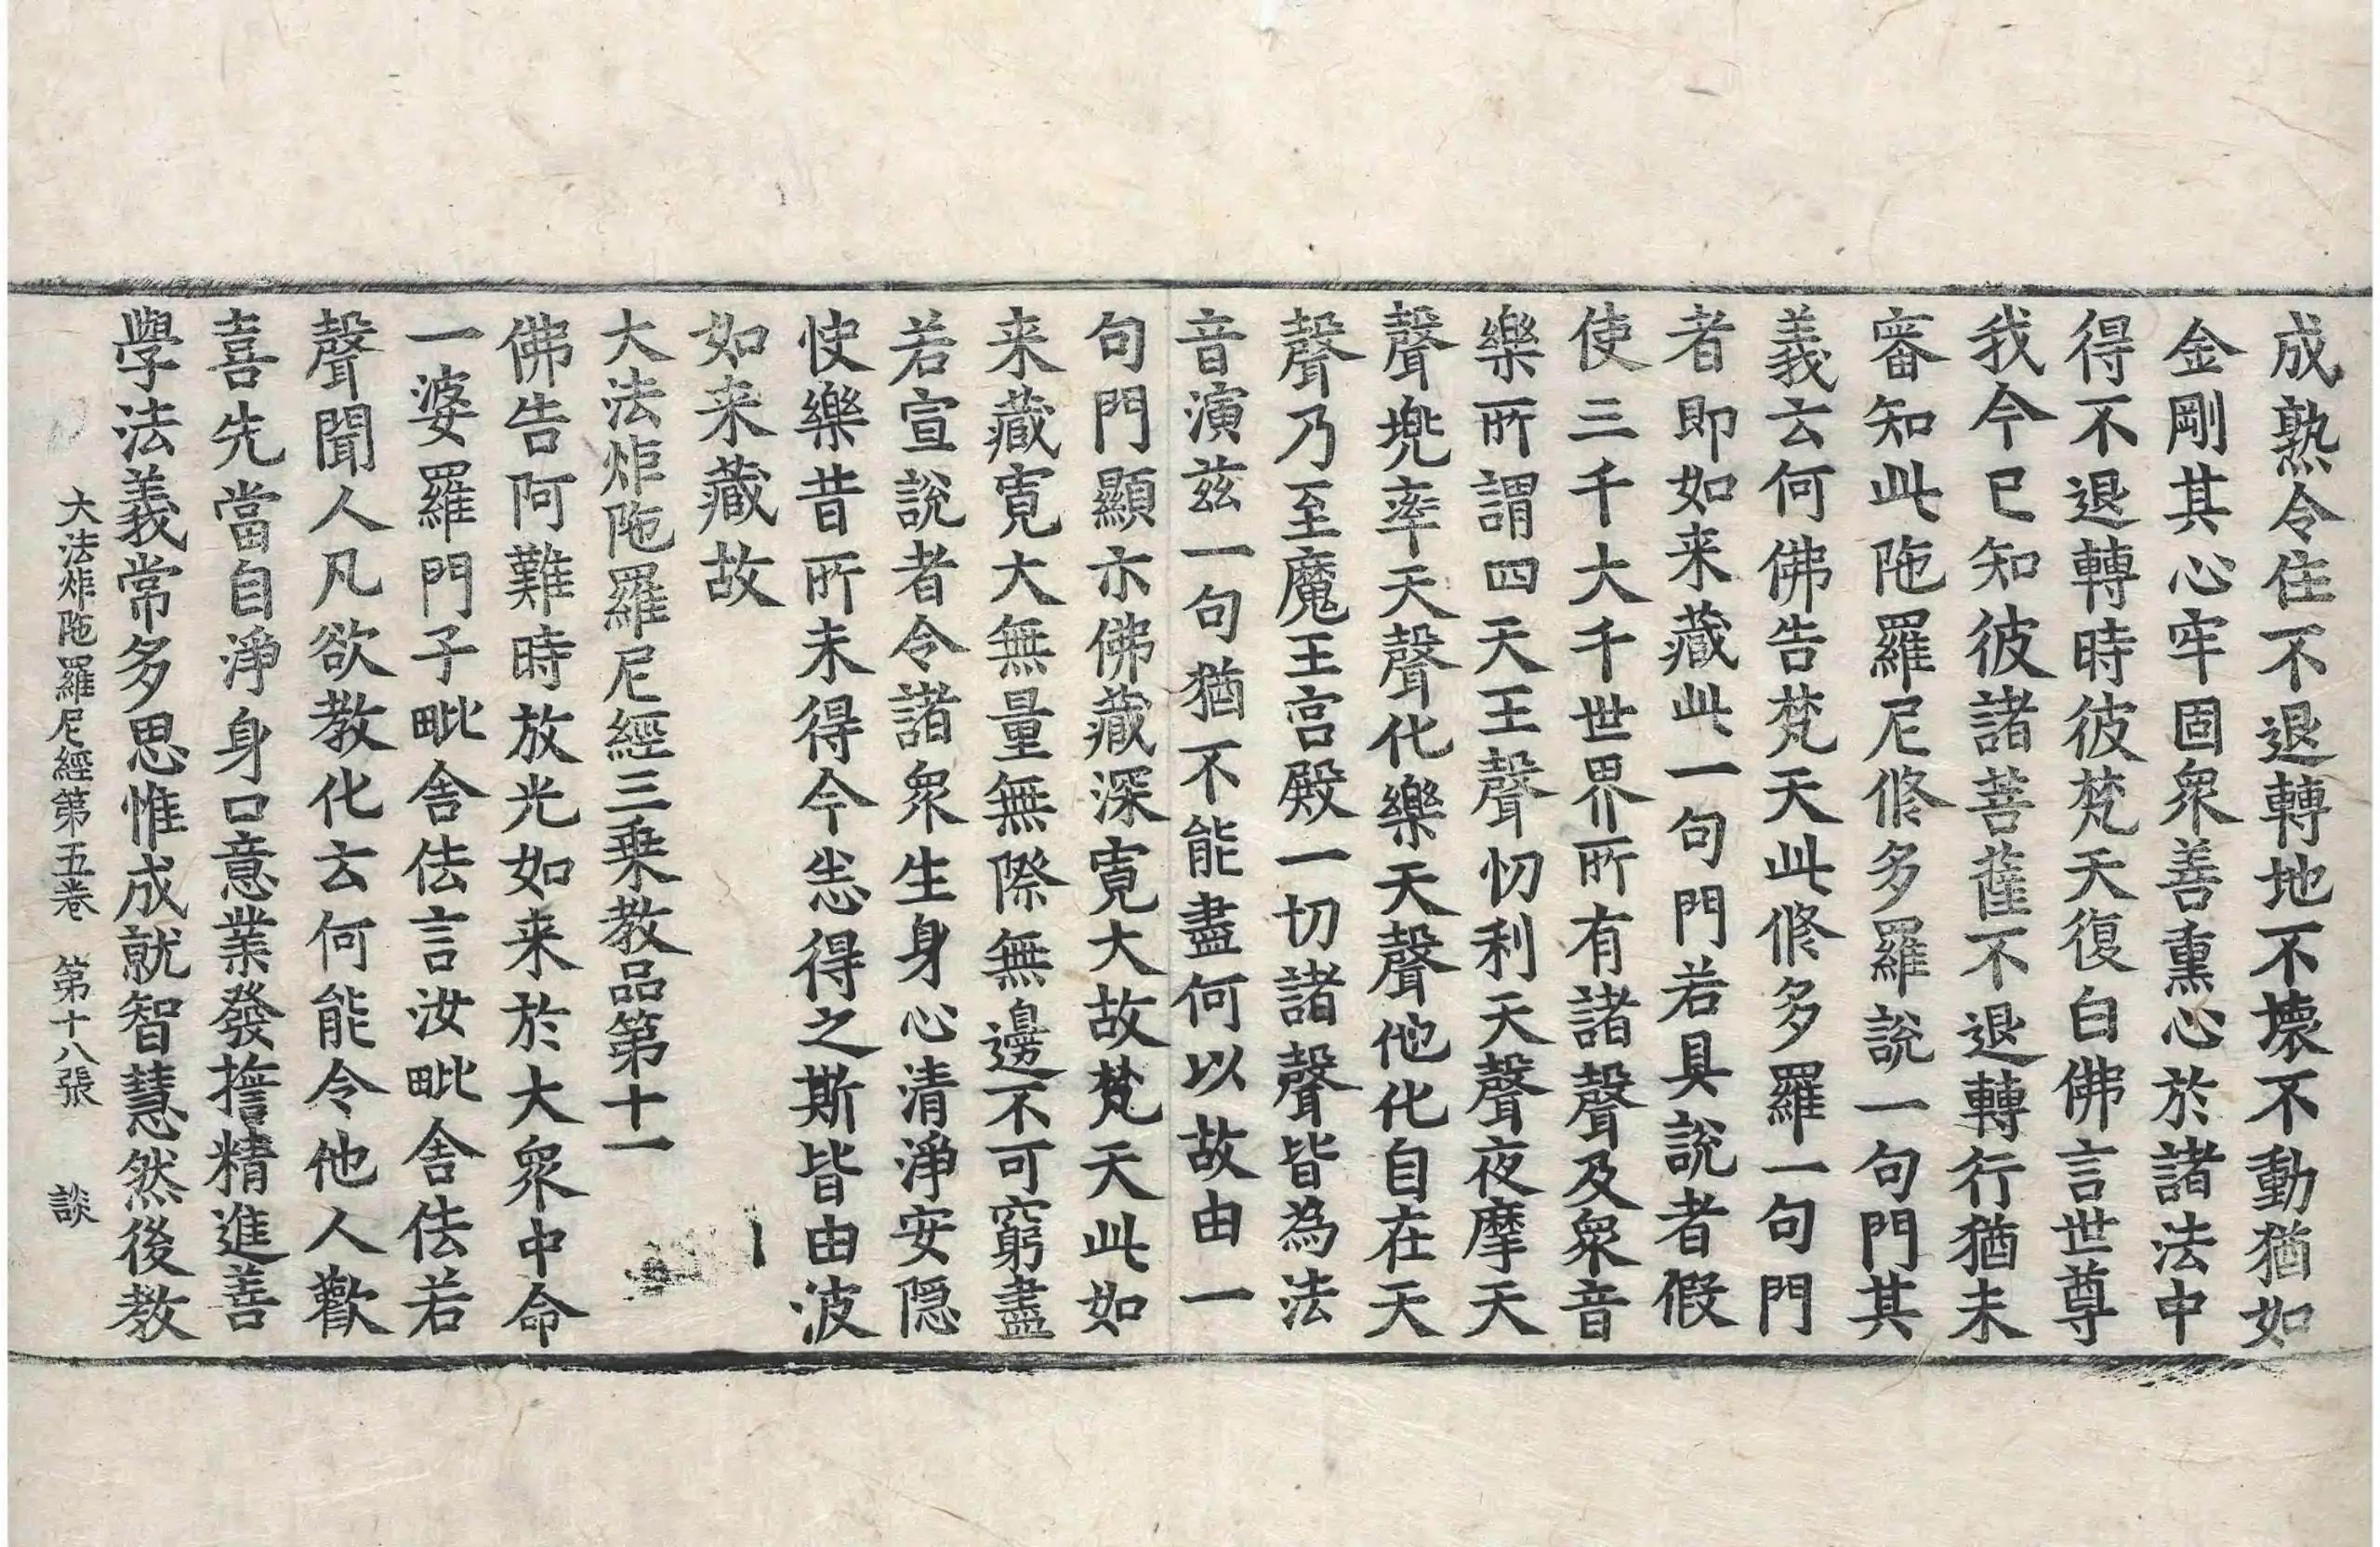 成熟令住不退轉地不壞不動猶如
金剛其心牢固衆善熏心於諸法中
得不退轉時彼梵天復白佛言世尊
我今已知彼諸菩薩不退轉行猶未
審知此陁羅尼修多羅說一句門其
義云何佛告梵天此修多羅一句門
者即如来藏此一句門若具說者假
使三千大千世界所有諸聲及衆音
樂所謂四天王聲忉利天聲夜摩天
聲兠率天聲化樂天聲他化自在天
聲乃至魔王宮殿一切諸聲皆為法
音演兹一句猶不能盡何以故由一
句門顯示佛藏深寛大故梵天此如
来藏寛大無量無際無邊不可窮盡
若宣說者令諸衆生身心清淨安隠
快樂昔所未得今悉得之斯皆由波
如来藏故
大法炬陁羅尼經三乗教品第十一
佛告阿難時放光如来於大衆中命
一婆羅門子毗舎佉言汝毗舎佉若
聲聞人凡欲教化云何能令他人歡
喜先當自淨身口意業發擔精進善
學法義常多思惟成就智慧然後教
大法炬陁羅尼經第五卷　第十八張　談